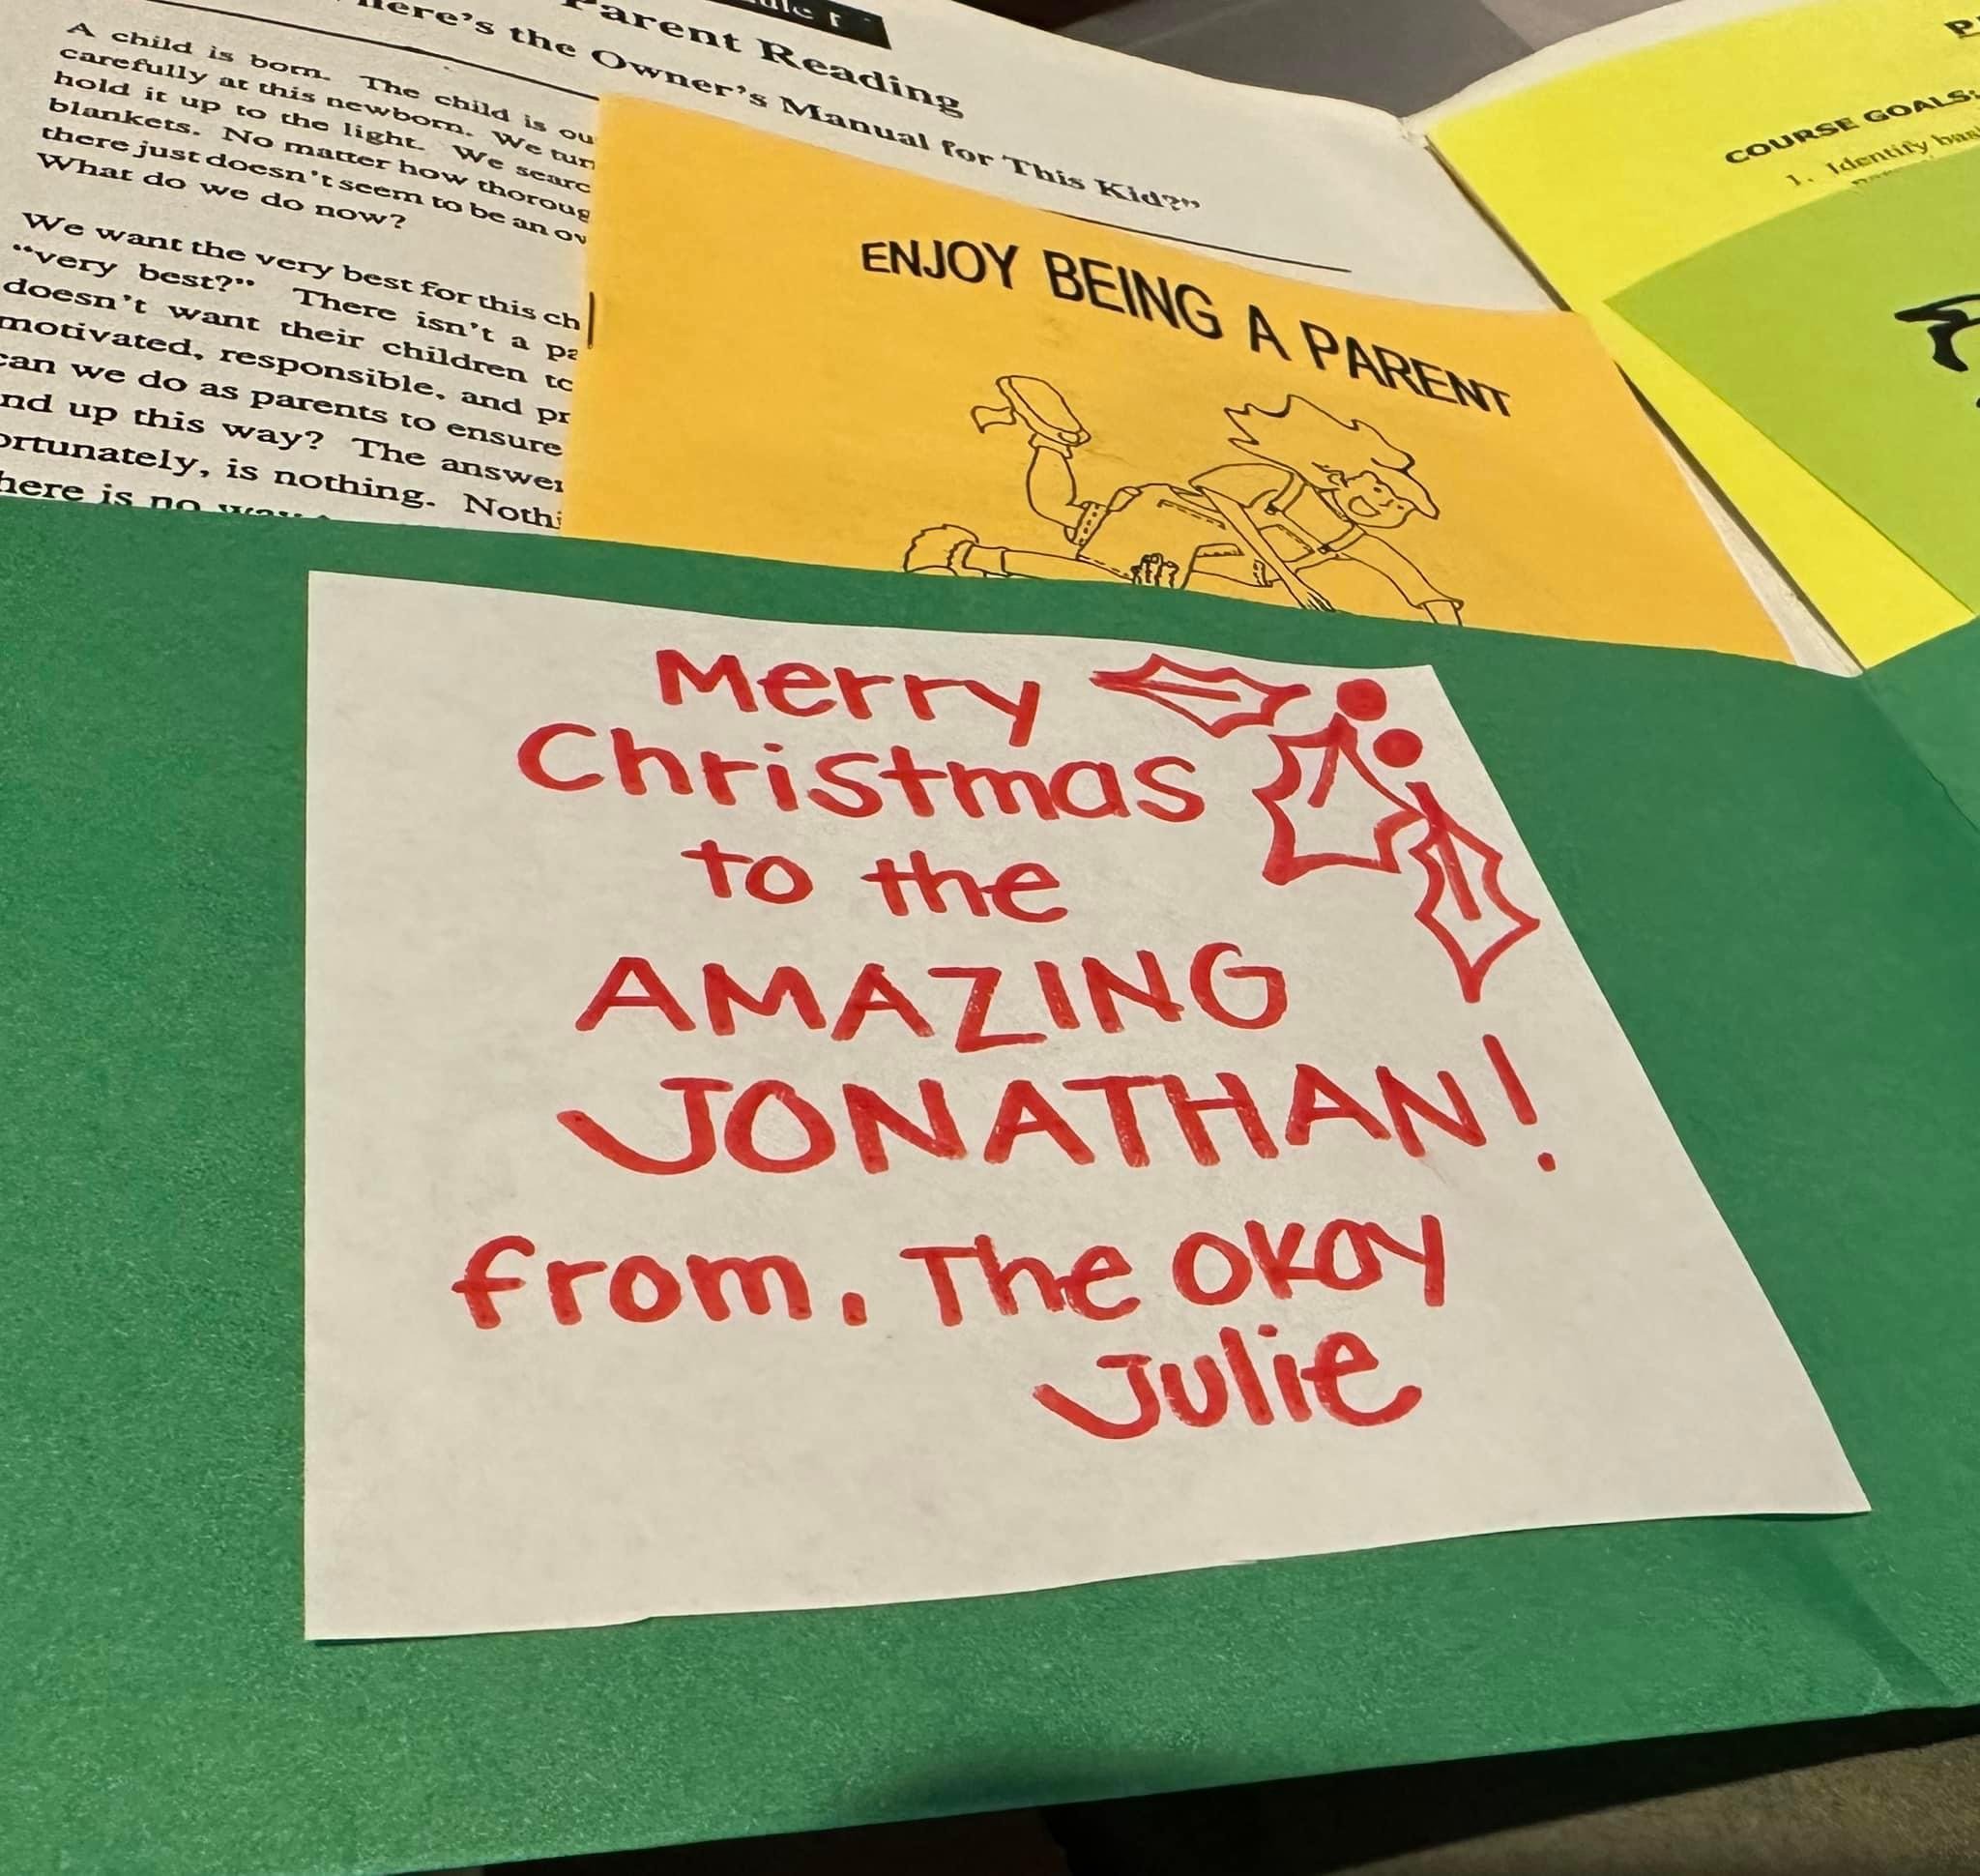 Parent Reading
the Owner's Manual for This Kid?"
A child is born. The child is
carefully at this newborn. We
hold it up to the light. We
blankets. No matter how
there just doesn't seem to be an
What do we do now?
We want the very best for this
"very best?" There isn't a
doesn't want their children
motivated, responsible, and
can we do as parents to ensure
up this way? The
is nothing.
is no
ENJOY BEING A PARENT
COURSE GOALS:
1. Identify
Merry
Christmas
to the
AMAZING
JONATHAN!
from, The okay
Julie